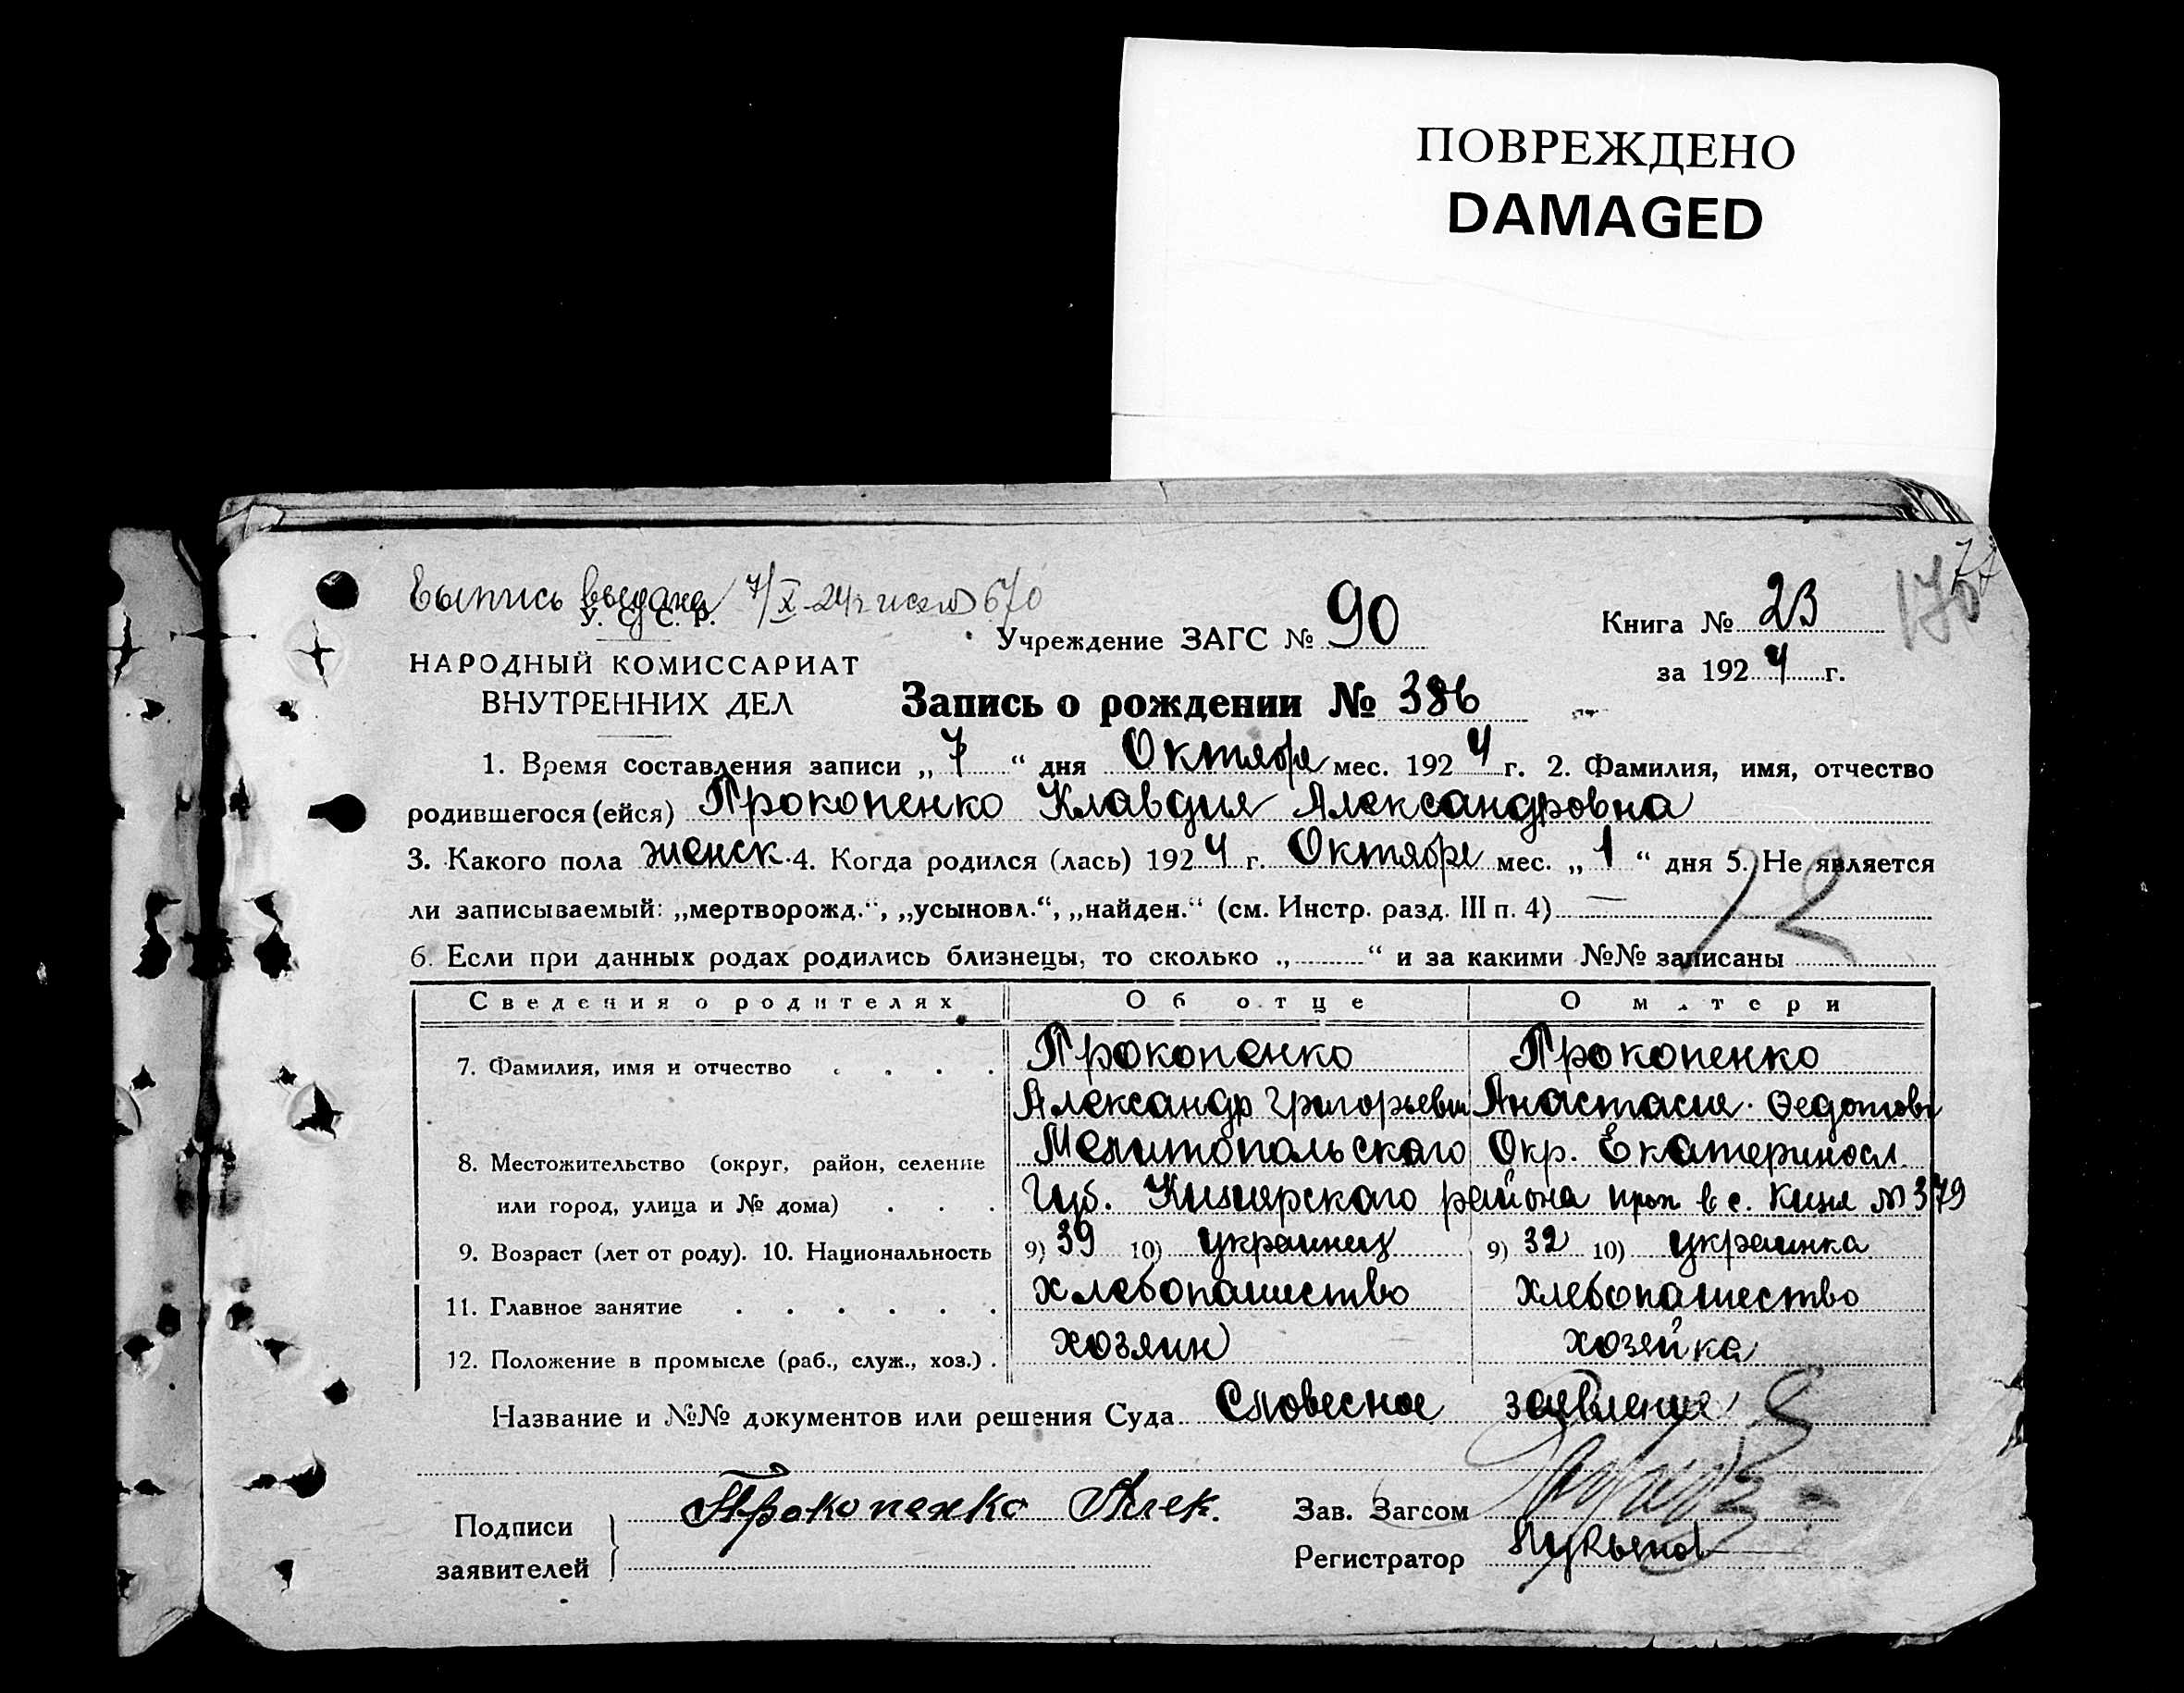 ПОВРЕЖДЕНО
DAMAGED
Выпись выдана 7/X-24г за № 670
У. С. С. Р.
НАРОДНЫЙ КОМИССАРИАТ
ВНУТРЕННИХ ДЕЛ
Учреждение ЗАГС № 90
Книга № 23
за 1924 г.
Запись о рождении № 386
1. Время составления записи „7“ дня Октября мес. 1924 г. 2. Фамилия, имя, отчество
родившегося (ейся) Прокопенко Клавдия Александровна
3. Какого пола женск. 4. Когда родился (лась) 1924 г. Октября мес. „1“ дня 5. Не является
ли записываемый: „мертворожд.“, „усыновл.“, „найден.“ (см. Инстр. разд. III п. 4) —
6. Если при данных родах родились близнецы, то сколько „ “ и за какими №№ записаны
Сведения о родителях Об отце О матери
7. Фамилия, имя и отчество Прокопенко Прокопенко
Александр Григорьевич Анастасия Федотовн
8. Местожительство (округ, район, селение Мелитопольского Окр. Екатериносл.
или город, улица и № дома) Губ. Кизиярского района прож в с. Кизия № 379
9. Возраст (лет от роду). 10. Национальность 9) 39 10) украинец 9) 32 10) украинка
11. Главное занятие хлебопашество хлебопашество
12. Положение в промысле (раб., служ., хоз.) хозяин хозяйка
Название и №№ документов или решения Суда Словесное заявление
Подписи
заявителей
Прокопенко Алек.
Зав. Загсом
Регистратор